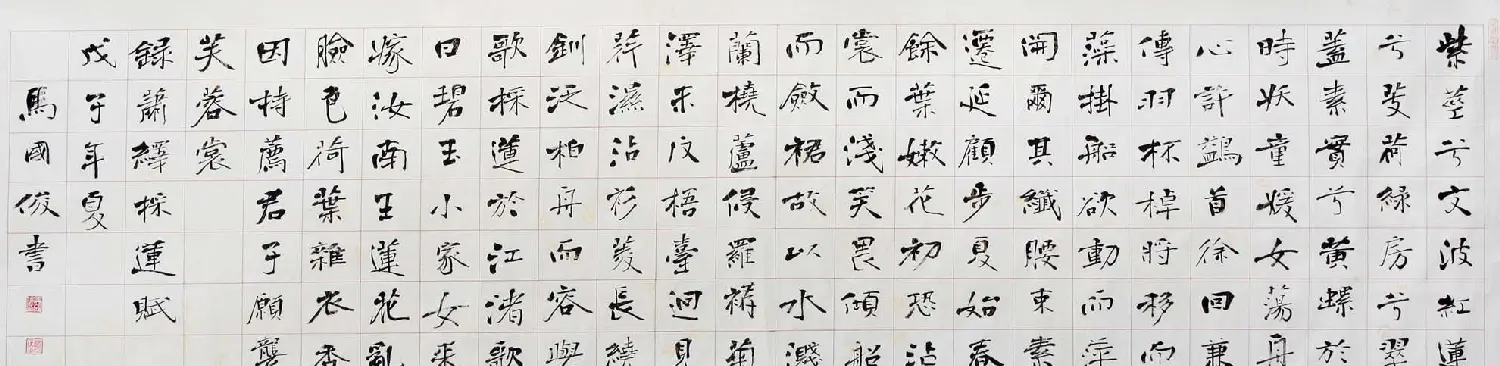 紫莖兮文波紅蓮
兮芰荷綠房兮翠
蓋素實兮黃螺於
時妖童媛女蕩舟
心許鷁首徐回兼
傳羽杯棹將移而
藻掛船欲動而萍
開爾其纖腰束素
遷延顧步夏始春
餘葉嫩花初恐沾
裳而淺笑畏傾船
而斂裾故以水濺
蘭橈蘆侵羅褥菊
澤未反梧臺迥見
荇濕沾衫菱長繞
釧泛柏舟而容與
歌採蓮於江渚歌
曰碧玉小家女來
嫁汝南王蓮花亂
臉色荷葉雜衣香
因持薦君子願襲
芙蓉裳
錄蕭繹採蓮賦
戊子年夏
馬國俊書